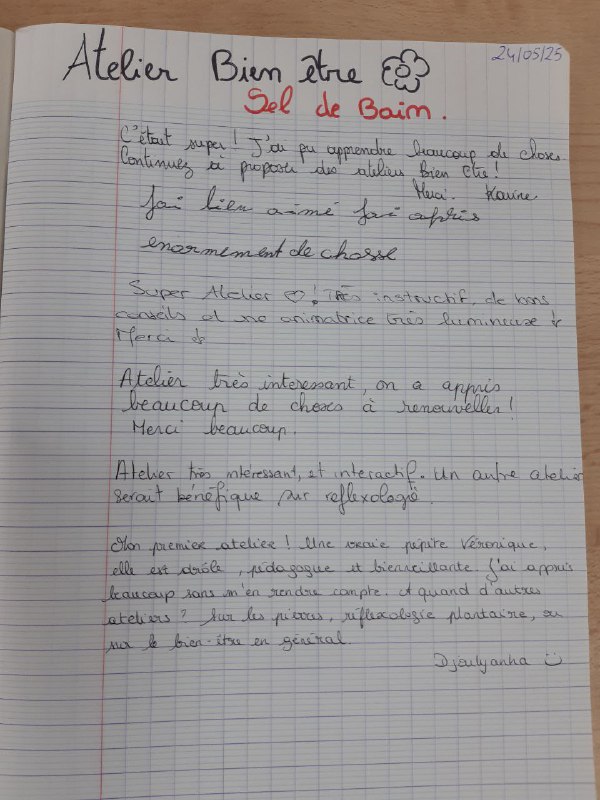 24/05/25
Atelier Bien être
Sel de Bain.
C'était super ! J'ai pu apprendre beaucoup de choses.
Continuez à proposer des ateliers Bien Etre !
Merci. Karine
J'ai bien aimé j'ai appris
enormement de chosse
Super Atelier ♡ ! Très instructif, de bons
conseils et une animatrice très lumineuse
Merci
Atelier très interessant, on a appris
beaucoup de choses à renouveller !
Merci beaucoup.
Atelier très intéressant, et interactif. Un autre atelier
serait bénéfique sur reflexologie.
Mon premier atelier ! Une vraie pépite Véronique,
elle est drôle, pédagogue et bienveillante. J'ai appris
beaucoup sans m'en rendre compte. A quand d'autres
ateliers ? Sur les pierres, réflexologie plantaire, ou
sur le bien-être en général.
Djoulyanha